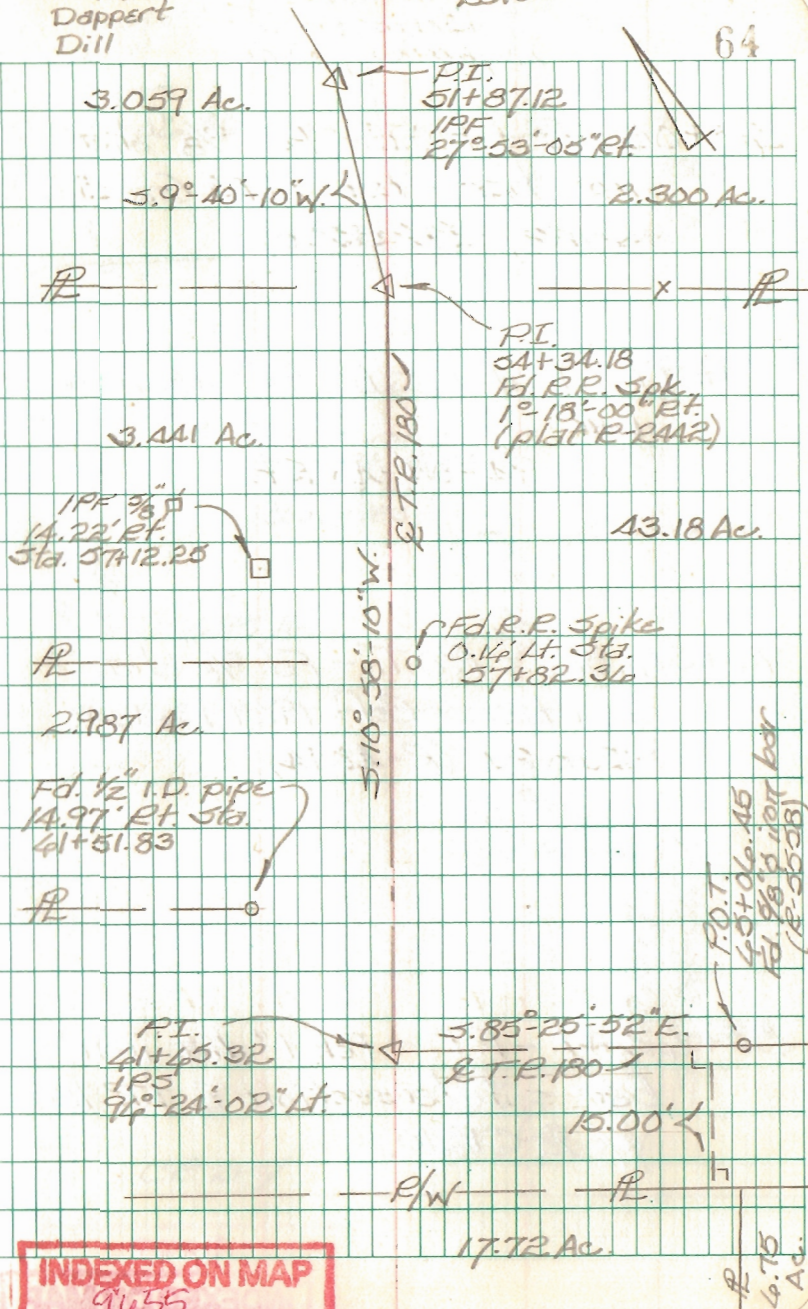 Dappert
Dill
64
3.059 Ac.
P.I.
51+87.12
IPF
27°-53'-05" Rt.
S.9°-40'-10"W.
2.300 Ac.
PL
x
PL
P.I.
54+34.18
Fd. R.R. Spk.
1°-18'-00" Rt.
(plat R-2442)
℄ T.R. 180
3.441 Ac.
IPF 5/8"□
14.22' Rt.
Sta. 57+12.25
43.18 Ac.
S.10°-58'-10"W.
Fd. R.R. Spike
0.16' Lt. Sta.
57+82.36
PL
2.987 Ac.
Fd. 1/2" I.D. pipe
14.97' Rt. Sta.
61+51.83
PL
P.O.T.
65+06.45
Fd. 5/8"⌀ iron bar
(R-5558)
P.I.
61+65.32
IPS
96°-24'-02" Lt.
S.85°-25'-52"E.
℄ T.R. 180
15.00'
R/W
PL
17.72 Ac.
PL
6.75
Ac.
INDEXED ON MAP
9655